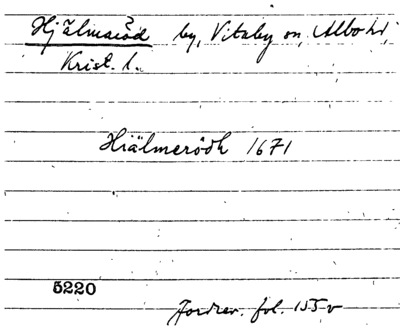 Hjälmaröd by, Vitaby sn, Albo hd,
Krist. l.
Hiälmerödh 1671
5220
Jordrev. fol. 155 v